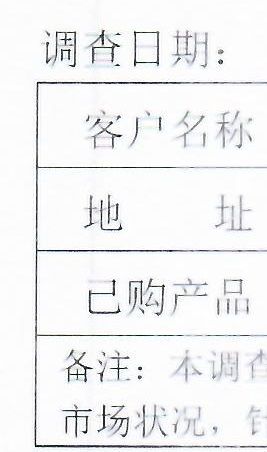 调查日期：
客户名称
地 址
已购产品
备注：本调查
市场状况，针